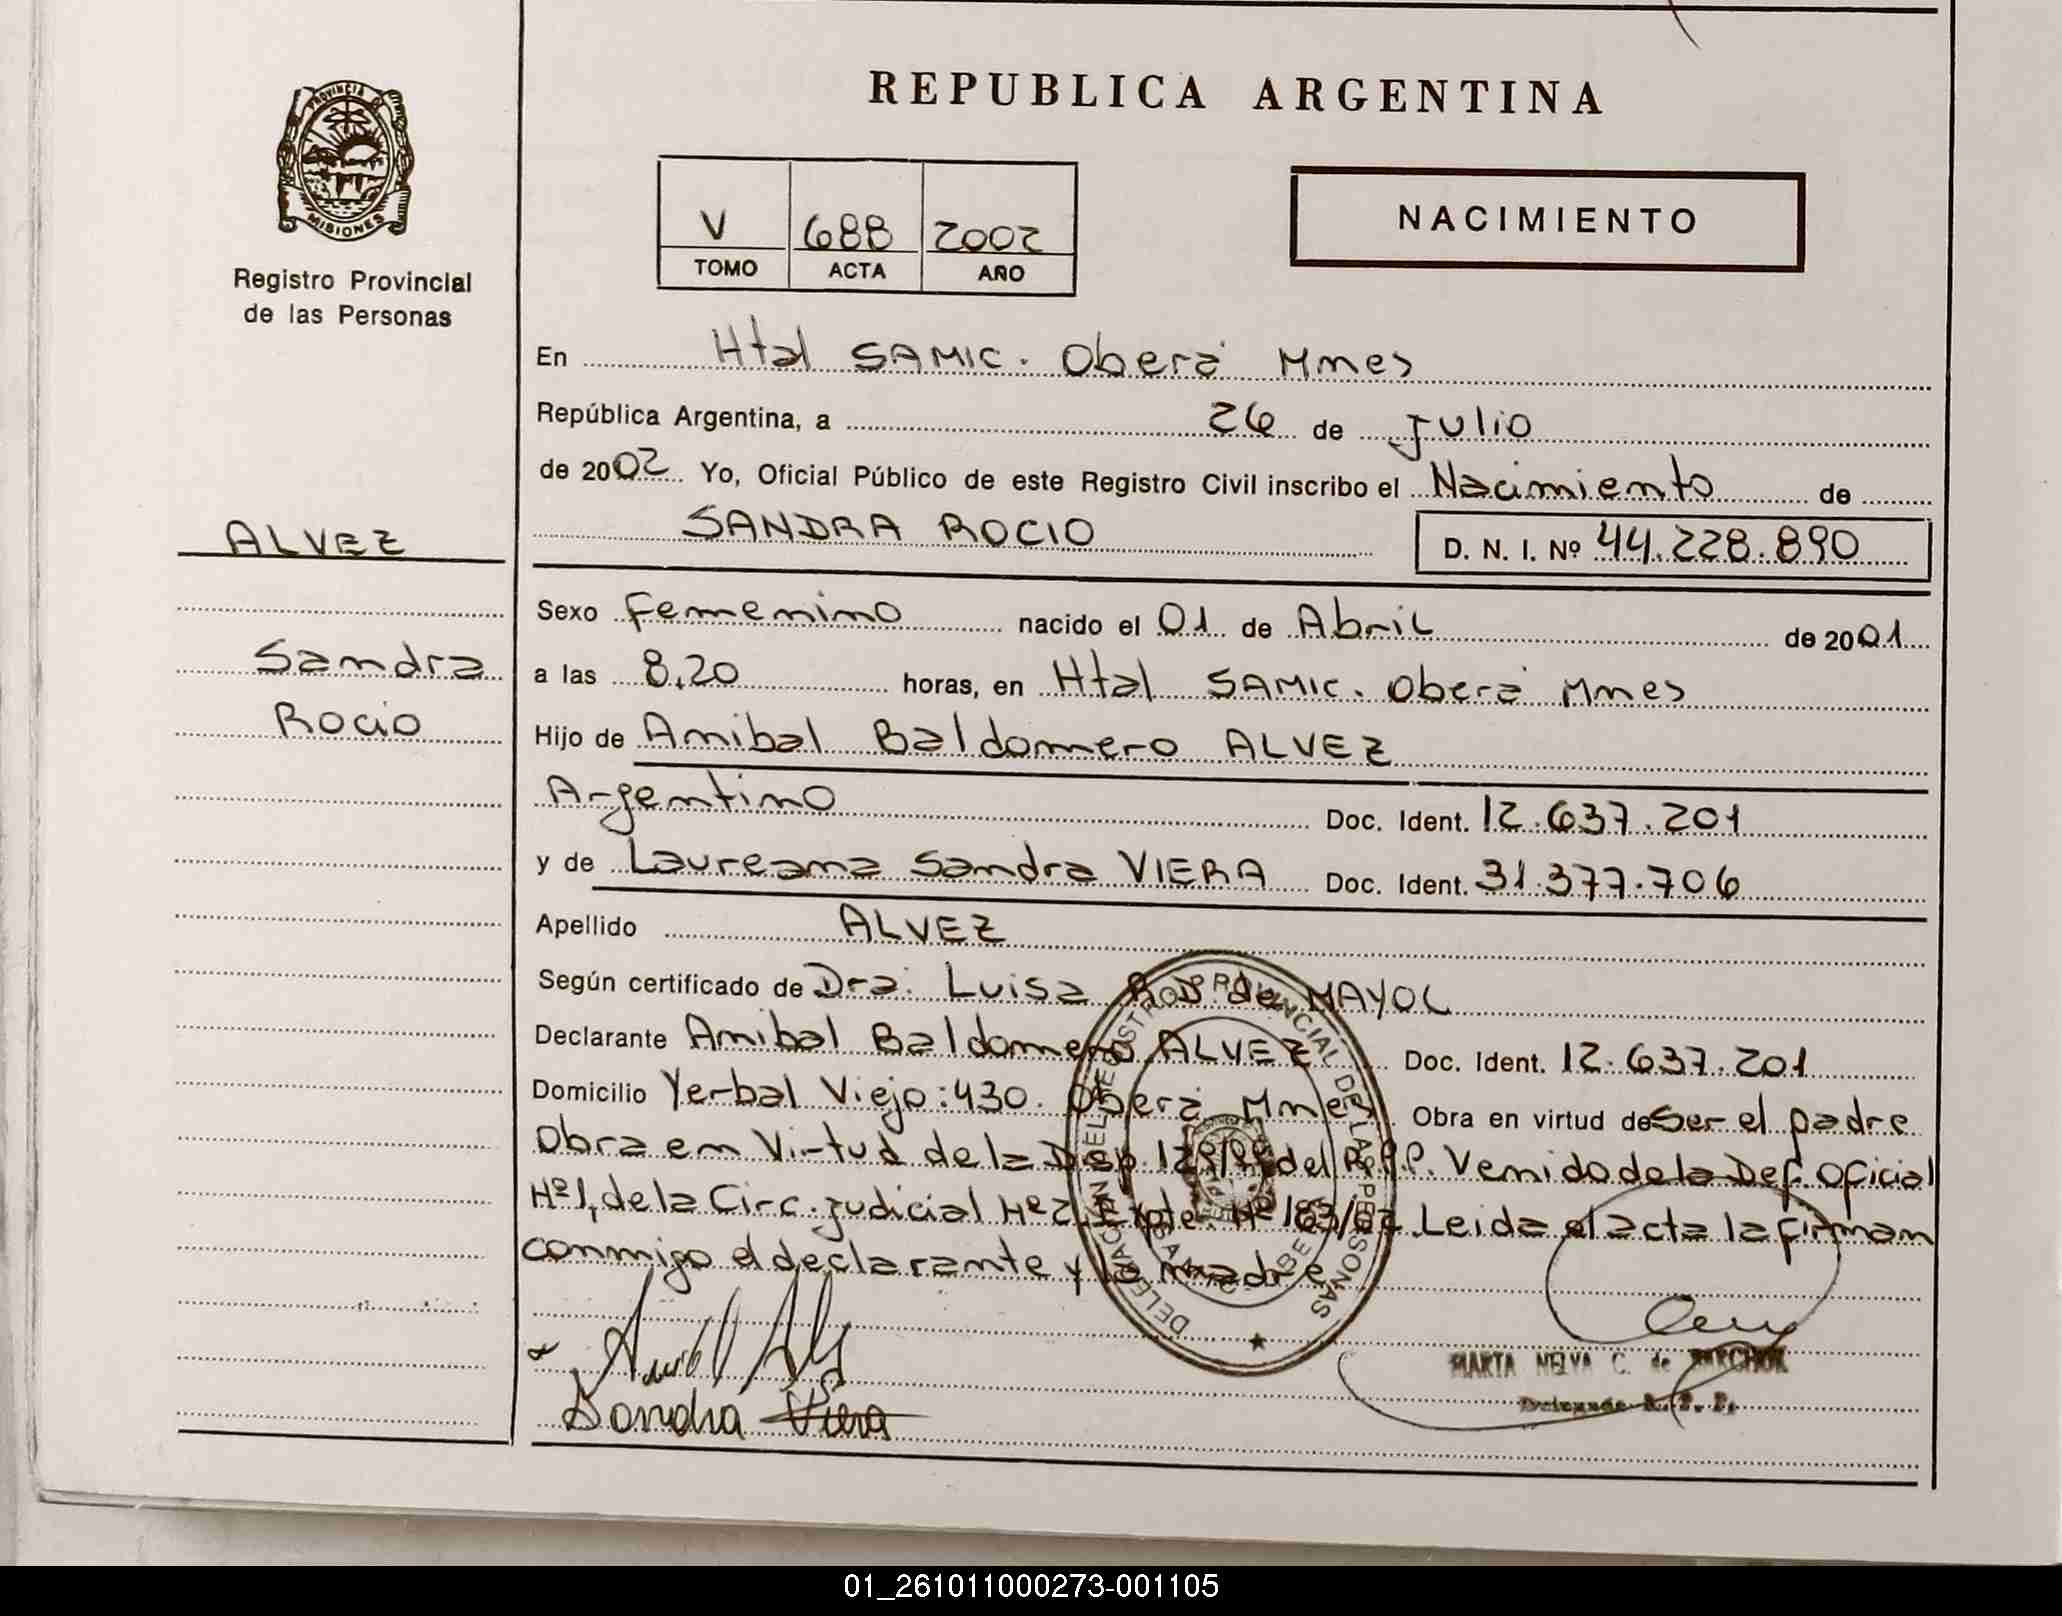 REPUBLICA ARGENTINA
PROVINCIA D
MISIONES
Registro Provincial
de las Personas
V 688 2002
TOMO ACTA AÑO
NACIMIENTO
En Htal SAMIC. Oberá Mnes
República Argentina, a 26 de Julio
de 2002 Yo, Oficial Público de este Registro Civil inscribo el Nacimiento de
SANDRA ROCIO D. N. I. Nº 44.228.890
ALVEZ
Sandra
Rocio
Sexo Femenino nacido el 01 de Abril de 2001
a las 8,20 horas, en Htal SAMIC. Oberá Mnes
Hijo de Anibal Baldomero ALVEZ
Argentino Doc. Ident. 12.637.201
y de Laureana Sandra VIERA Doc. Ident. 31.377.706
Apellido ALVEZ
Según certificado de Dra. Luisa R.D. de MAYOL
Declarante Anibal Baldomero ALVEZ Doc. Ident. 12.637.201
Domicilio Yerbal Viejo: 430. Oberá Mnes Obra en virtud de Ser el padre
Obra en Virtud de la Disp. del R.P.P. Venido de la Def. Oficial
Nº1, de la Circ. Judicial Nº2, Expte. Nº 163/02. Leida el acta la firman
conmigo el declarante y la madre.
DELEGACION DEL REGISTRO PROVINCIAL DE LAS PERSONAS
Sandra Viera
MARTA NELVA C. de
Delegada R. P. P.
01_261011000273-001105